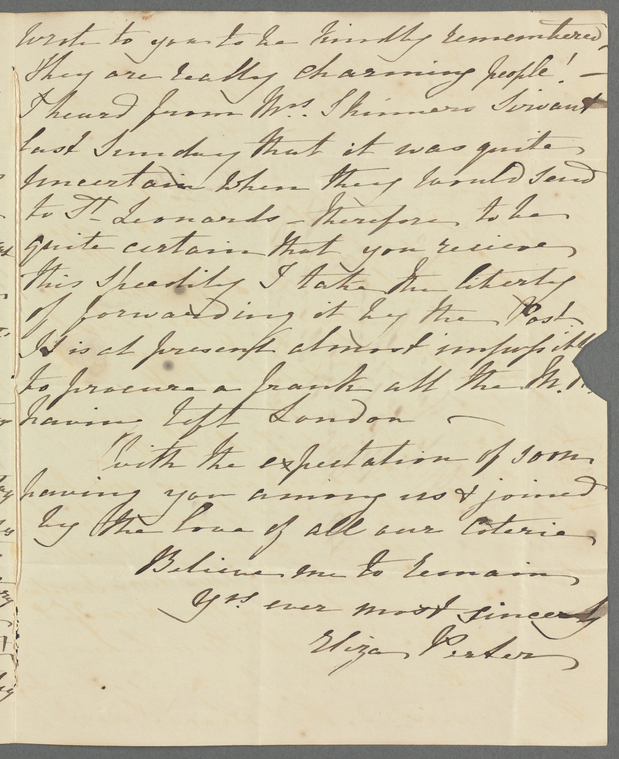 wrote to you to be kindly remembered,
they are really charming people! –
I heard from Mrs. Skinners Servant
last Sunday that it was quite
uncertain when they would send
to St. Leonards – therefore to be
quite certain that you recieve
this speedily I take the liberty
of forwarding it by the Post
It is at present almost impossible
to procure a frank all the M.Ps.
having left London –
With the expectation of soon
having you among us & joined
by the love of all our Coterie
Believe me to remain
Yrs ever most sincerely
Eliza Porter